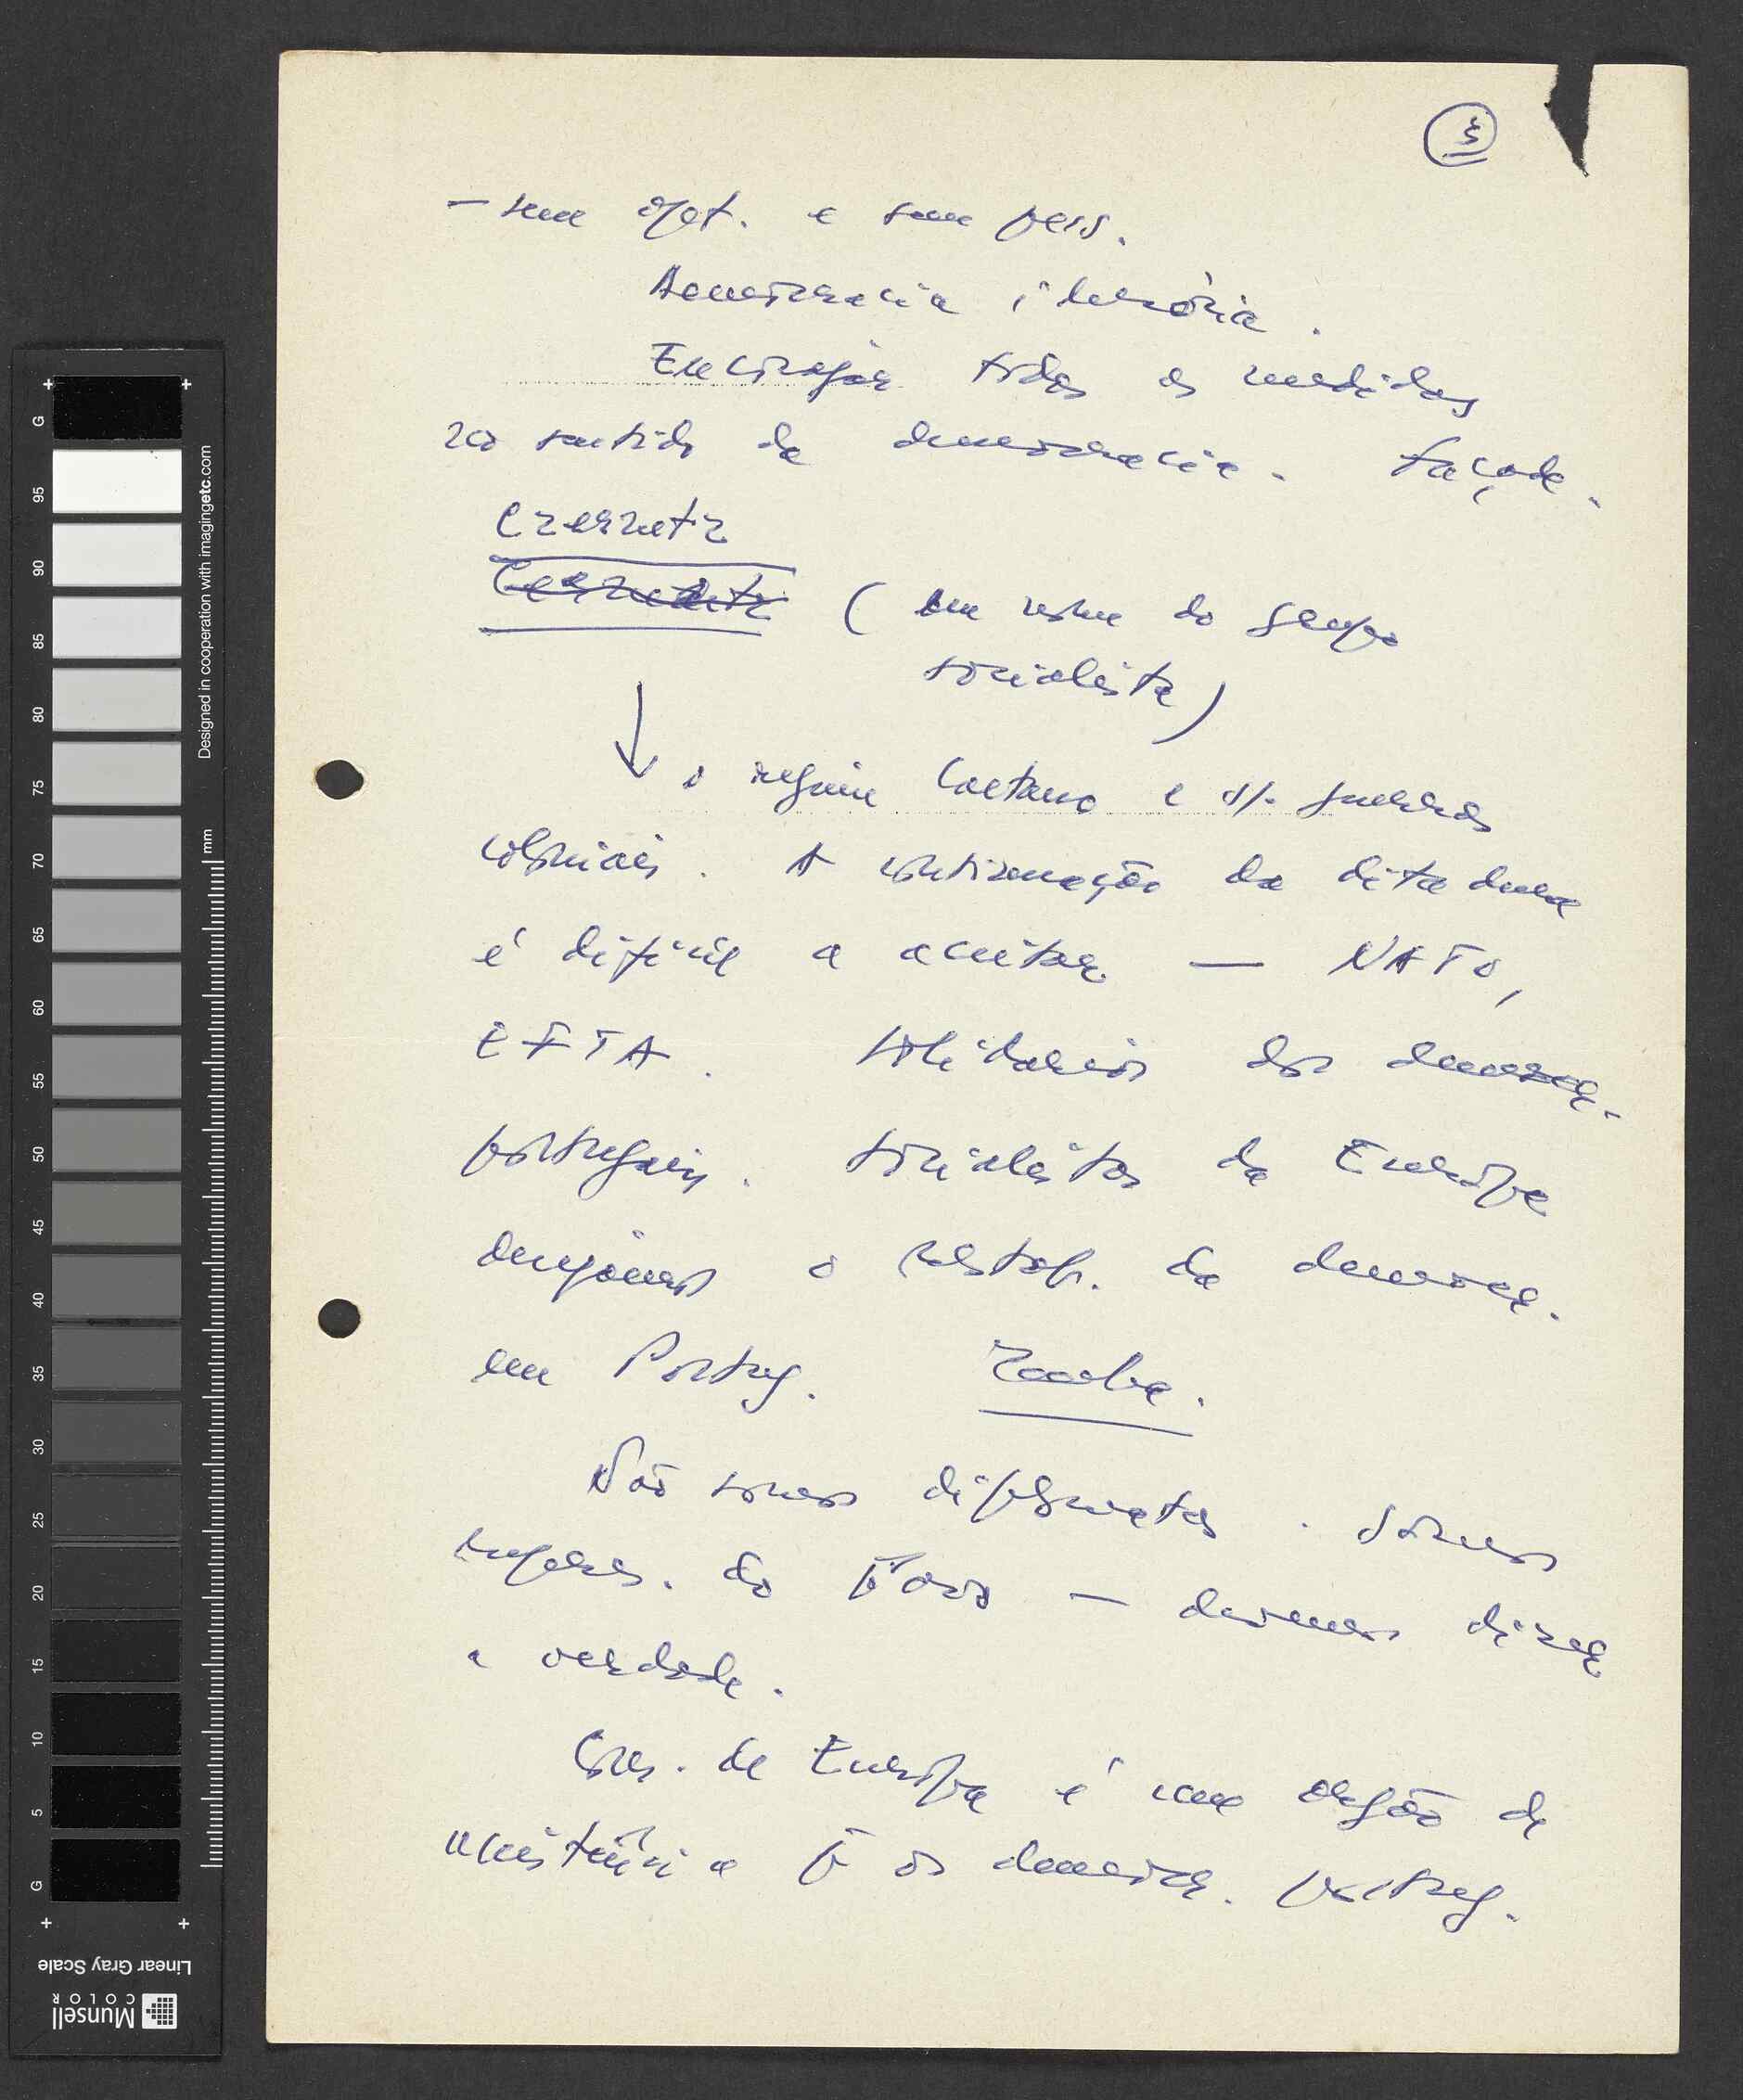 3
— sem opt. e sem pess.
Democracia ilusória.
Encorajar todas as medidas
no sentido da democracia. façade.
Czernetz
(em nome do grupo
socialista)
↓ o regime Caetano e as guerras
coloniais. A continuação da ditadura
é difícil a aceitar — NATO,
EFTA. Solidários dos democr.
portugueses. Socialistas da Europa
desejamos o restab. da democr.
em Portug.
Não somos diplomatas. Somos
represes. do Povo — devemos dizer
a verdade.
Cons. de Europa é um orgão de
assistência p. os democr. portug.
G 95 90 85 80 75 70 65 60 55 50 45 40 35 30 25 20 15 10 5 G
mm
Designed in cooperation with imagingetc.com
Linear Gray Scale
Munsell
COLOR